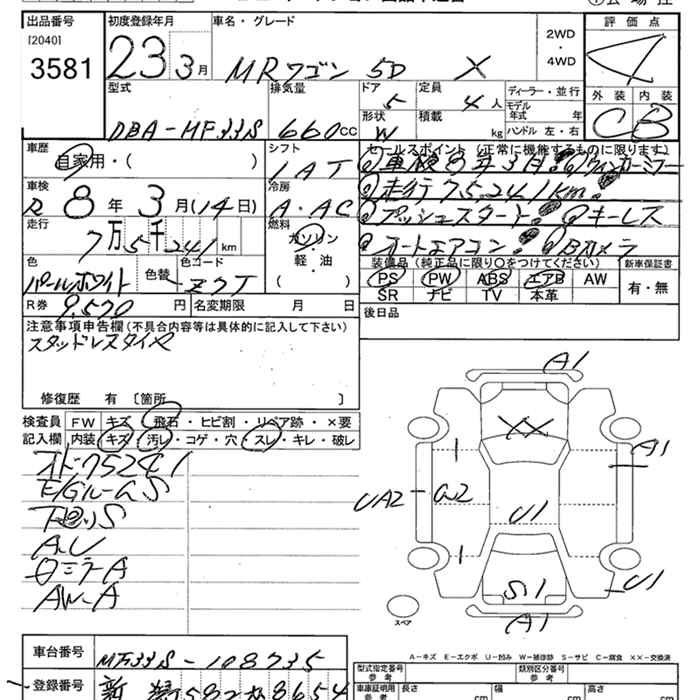 出品番号 初度登録年月 車名・グレード 評価点
[2040]
3581 23 3月 MRワゴン 5D X 2WD・4WD 4
型式 排気量 ドア 定員 ディーラー・並行 外装 内装
DBA-MF33S 660cc 5 4人 モデル年式 年 C B
形状 積載 W kg ハンドル 左・右
車歴 シフト セールスポイント(正常に機能するものに限ります)
自家用・( ) IAT 車検8年3月! ウィンカーミラー
車検 冷房 走行75,241km!
R8年3月(14日) A・AC プッシュスタート! キーレス
走行 燃料 オートエアコン! Bカメラ
7万5千241km ガソリン
軽・油
( )
装備品(純正品に限り○をつけてください) 新車保証書
色 色替 色コード PS PW ABS エアB AW 有・無
パールホワイト ZVJ SR ナビ TV 本革
R券 9,570円 名変期限 月 日 後日品
注意事項申告欄(不具合内容等は具体的に記入して下さい)
スタッドレスタイヤ
修復歴 有 〔箇所
検査員記入欄 FW キズ・飛石・ヒビ割・リペア跡・×要
内装 キズ・汚レ・コゲ・穴・スレ・キレ・破レ
オド75241
E/GルームS
下回リS
AW-A
A1
XX
A1
UA2
U2
U1
U1
S1
A1
スペア
A-キズ E-エクボ U-凹み W-補修跡 S-サビ C-腐食 ××-交換済
車台番号 MF33S-108735
登録番号 8654
型式指定番号 参考 類別区分番号 参考
車庫証明用 参考 長さ cm 幅 cm 高さ cm